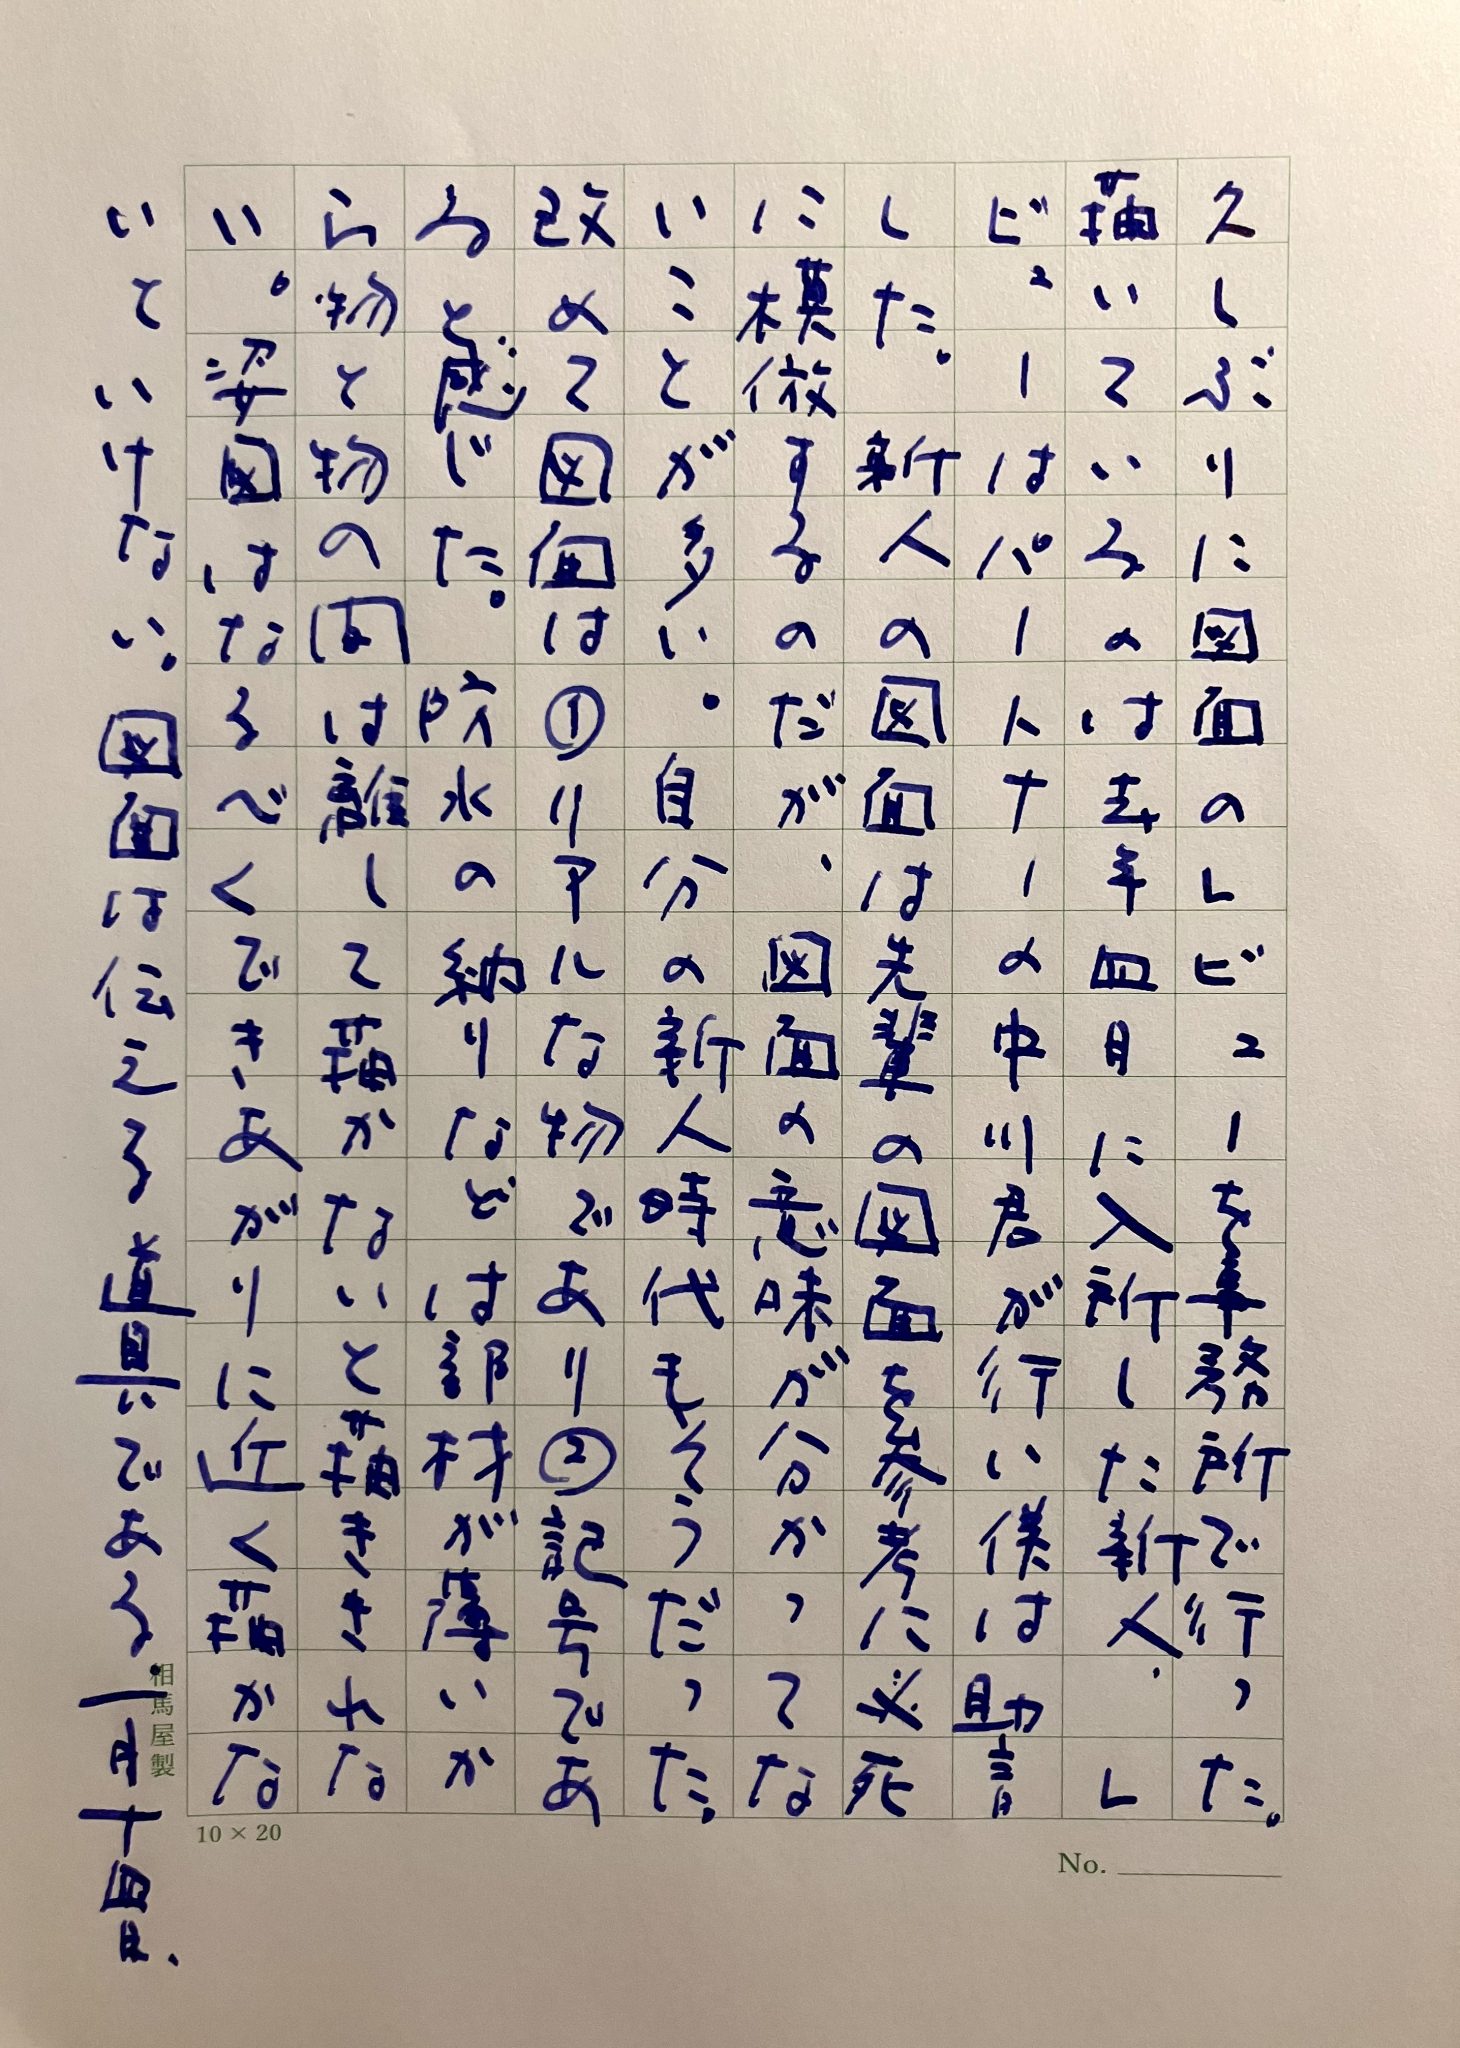 久しぶりに図面のレビューを事務所で行った。
描いているのは去年四月に入所した新人、レ
ビューはパートナーの中川君が行い僕は助言
した。新人の図面は先輩の図面を参考に必死
に模倣するのだが、図面の意味が分かってな
いことが多い。自分の新人時代もそうだった。
改めて図面は①リアルな物であり②記号であ
ると感じた。防水の納りなどは部材が薄いか
ら物と物の間は離して描かないと描ききれな
い。姿図はなるべくできあがりに近く描かな
いといけない。図面は伝える道具である。一月十四日、
相馬屋製
10×20
No.